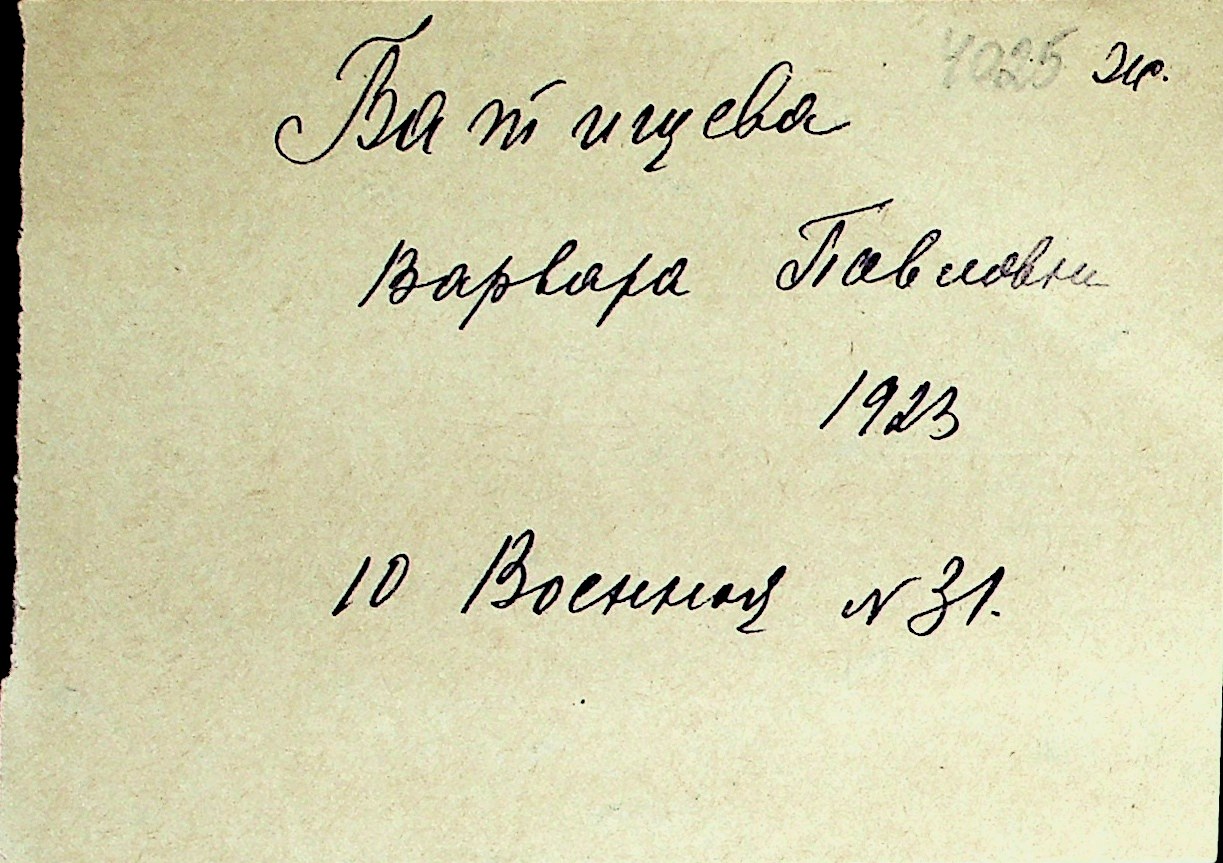 4025 ж.
Батищева
Варвара Павловна
1923
10 Военная № 31.